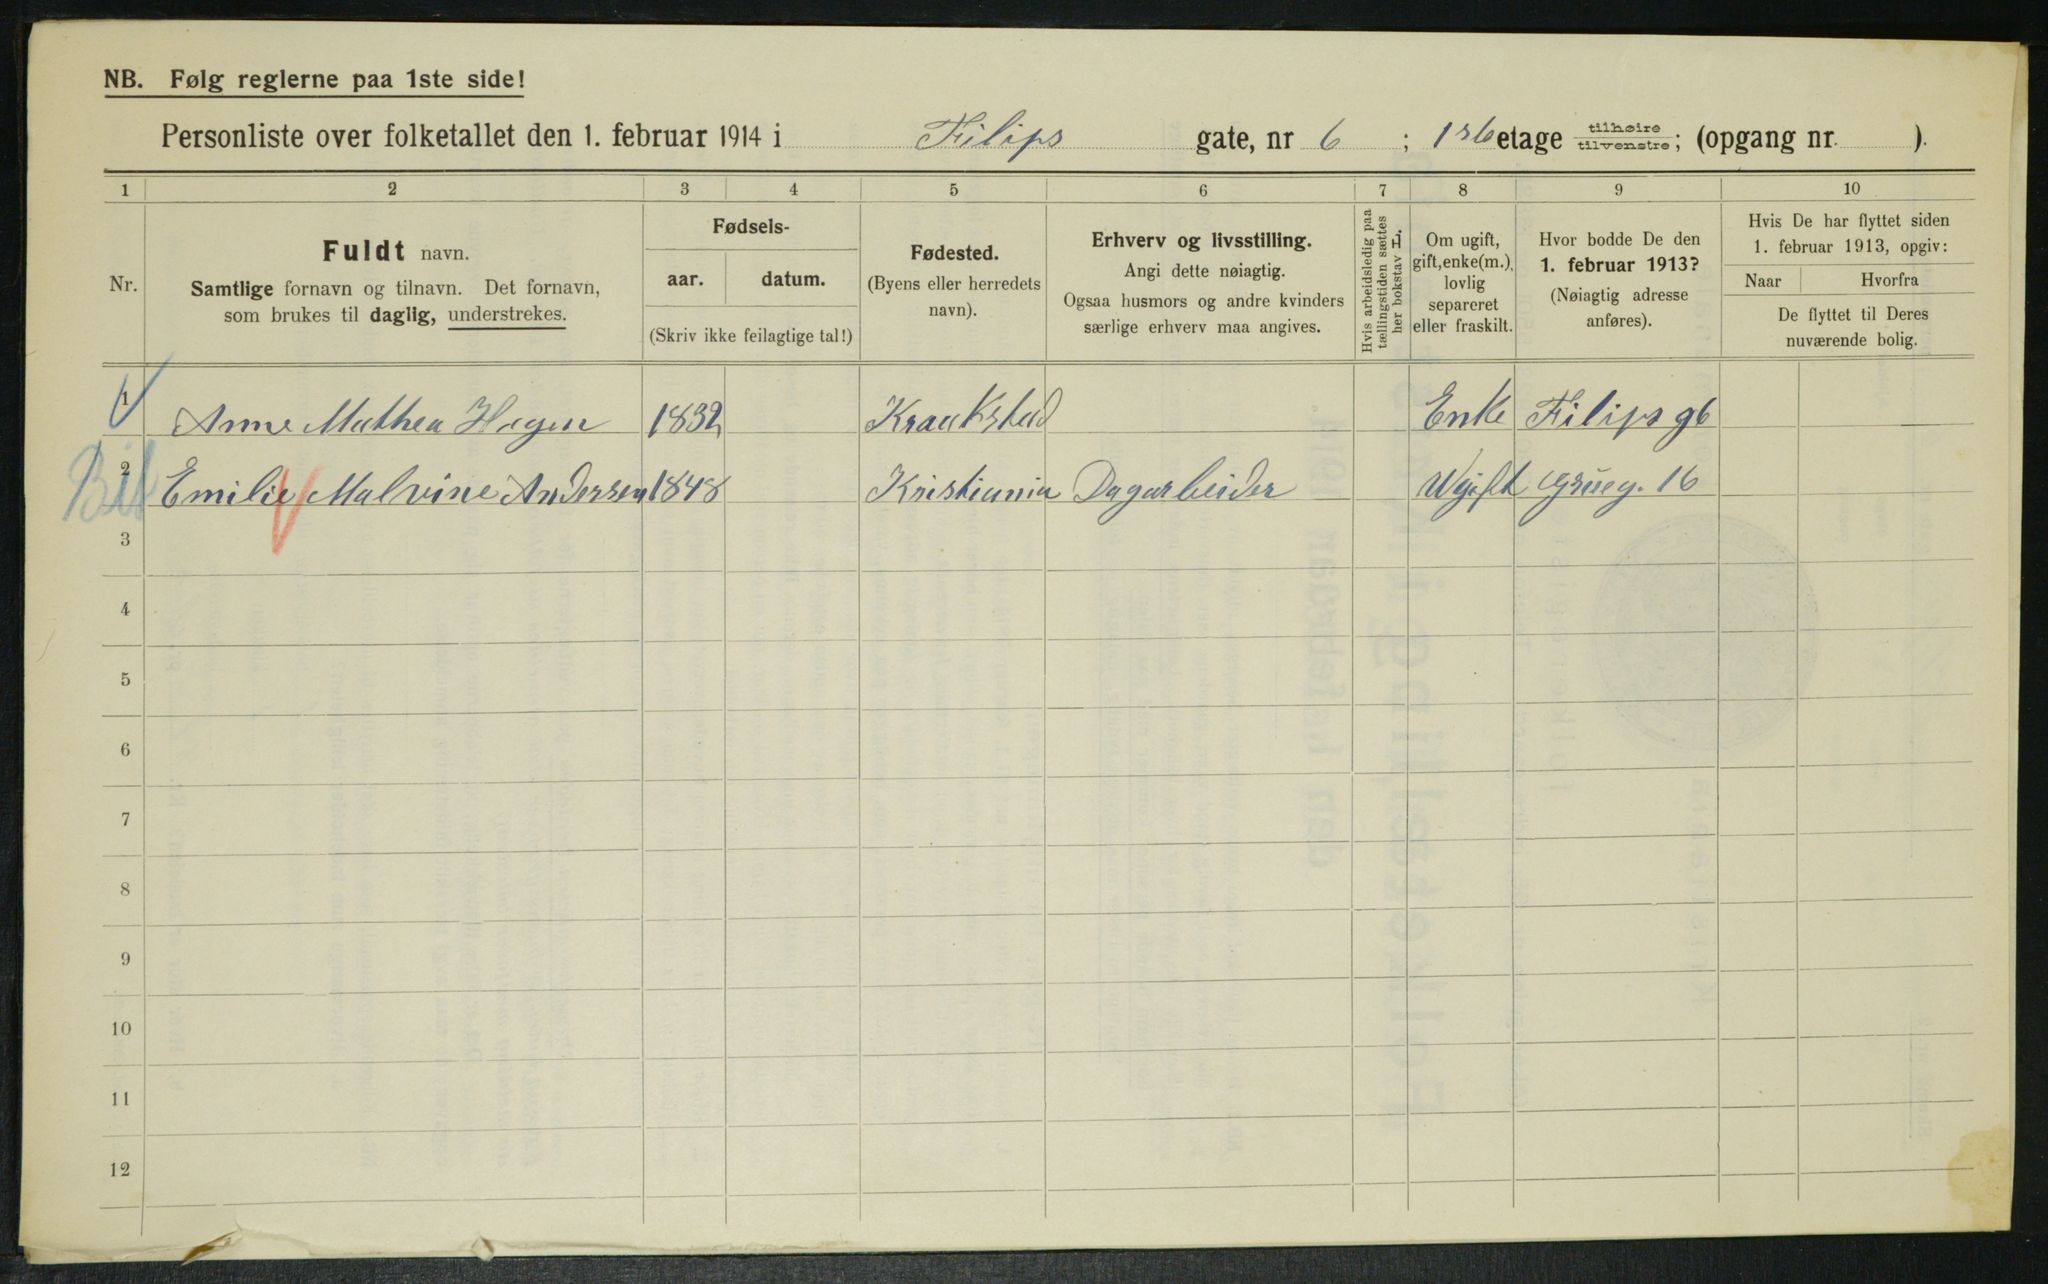 NB. Følg reglerne paa 1ste side!
Personliste over folketallet den 1. februar 1914 i Filips gate, nr 6 ; 1st etage tilhøire/tilvenstre; (opgang nr. ).
1 2 3 4 5 6 7 8 9 10
Nr.
Fuldt navn.
Samtlige fornavn og tilnavn. Det fornavn,
som brukes til daglig, understrekes.
Fødsels-
aar. datum.
(Skriv ikke feilagtige tal!)
Fødested.
(Byens eller herredets
navn).
Erhverv og livsstilling.
Angi dette nøiagtig.
Ogsaa husmors og andre kvinders
særlige erhverv maa angives.
Hvis arbeidsledig paa
tællingstiden sættes
her bokstav L.
Om ugift,
gift, enke(m.),
lovlig
separeret
eller fraskilt.
Hvor bodde De den
1. februar 1913?
(Nøiagtig adresse
anføres).
Hvis De har flyttet siden
1. februar 1913, opgiv:
Naar Hvorfra
De flyttet til Deres
nuværende bolig.
1 Anne Mathea Hagen 1832 Kraakstad Enke Filips g 6
2 Emilie Malvine Andersen 1848 Kristiania Dagarbeider Ugift Grüeg. 16
3
4
5
6
7
8
9
10
11
12